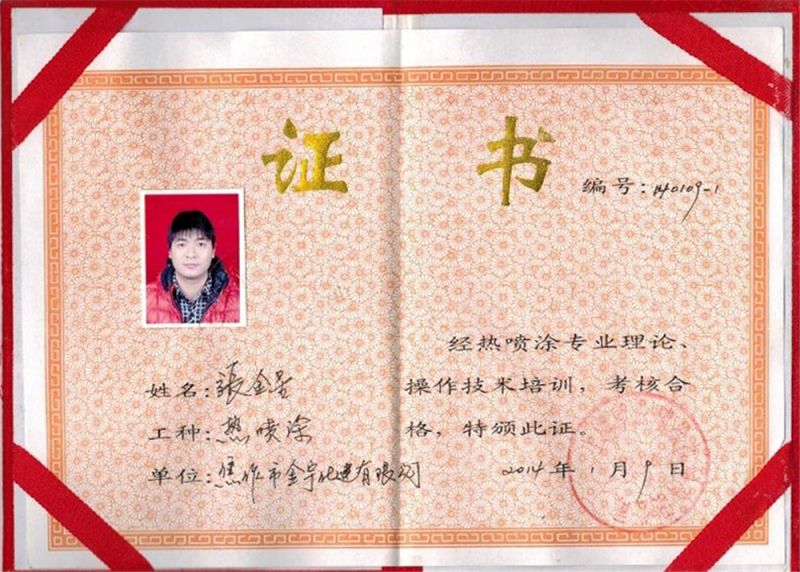 证书
编号：140109-1
姓名：张金星
工种：热喷涂
单位：焦作市金宇化建有限公司
经热喷涂专业理论、
操作技术培训，考核合
格，特颁此证。
2014年1月9日